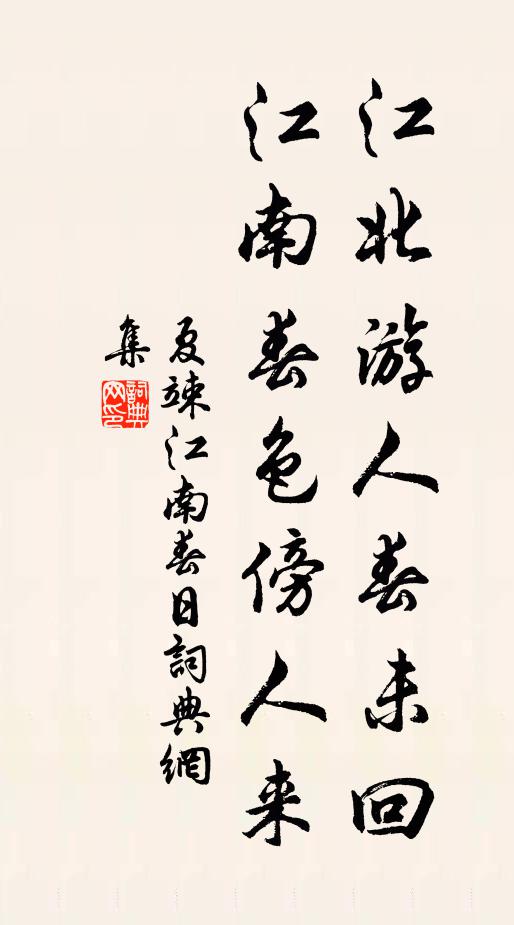 江北游人春未回
江南春色傍人来
夏竦江南春日詞典網
集
詞典網印